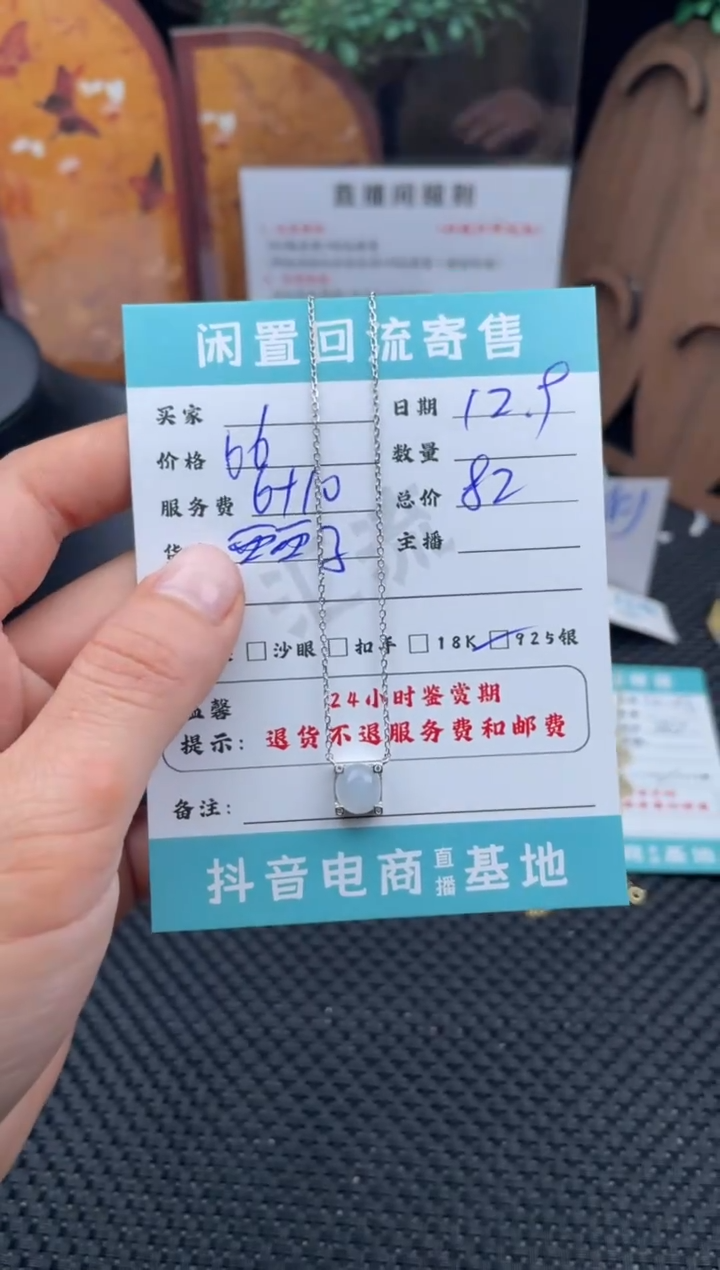 直播间规则
闲置回流寄售
买家 日期 12.9
价格 66 数量
服务费 6+10 总价 82
货 主播
汇流
沙眼 扣手 18K 925银
温馨 24小时鉴赏期
提示: 退货不退服务费和邮费
备注:
抖音电商直播基地